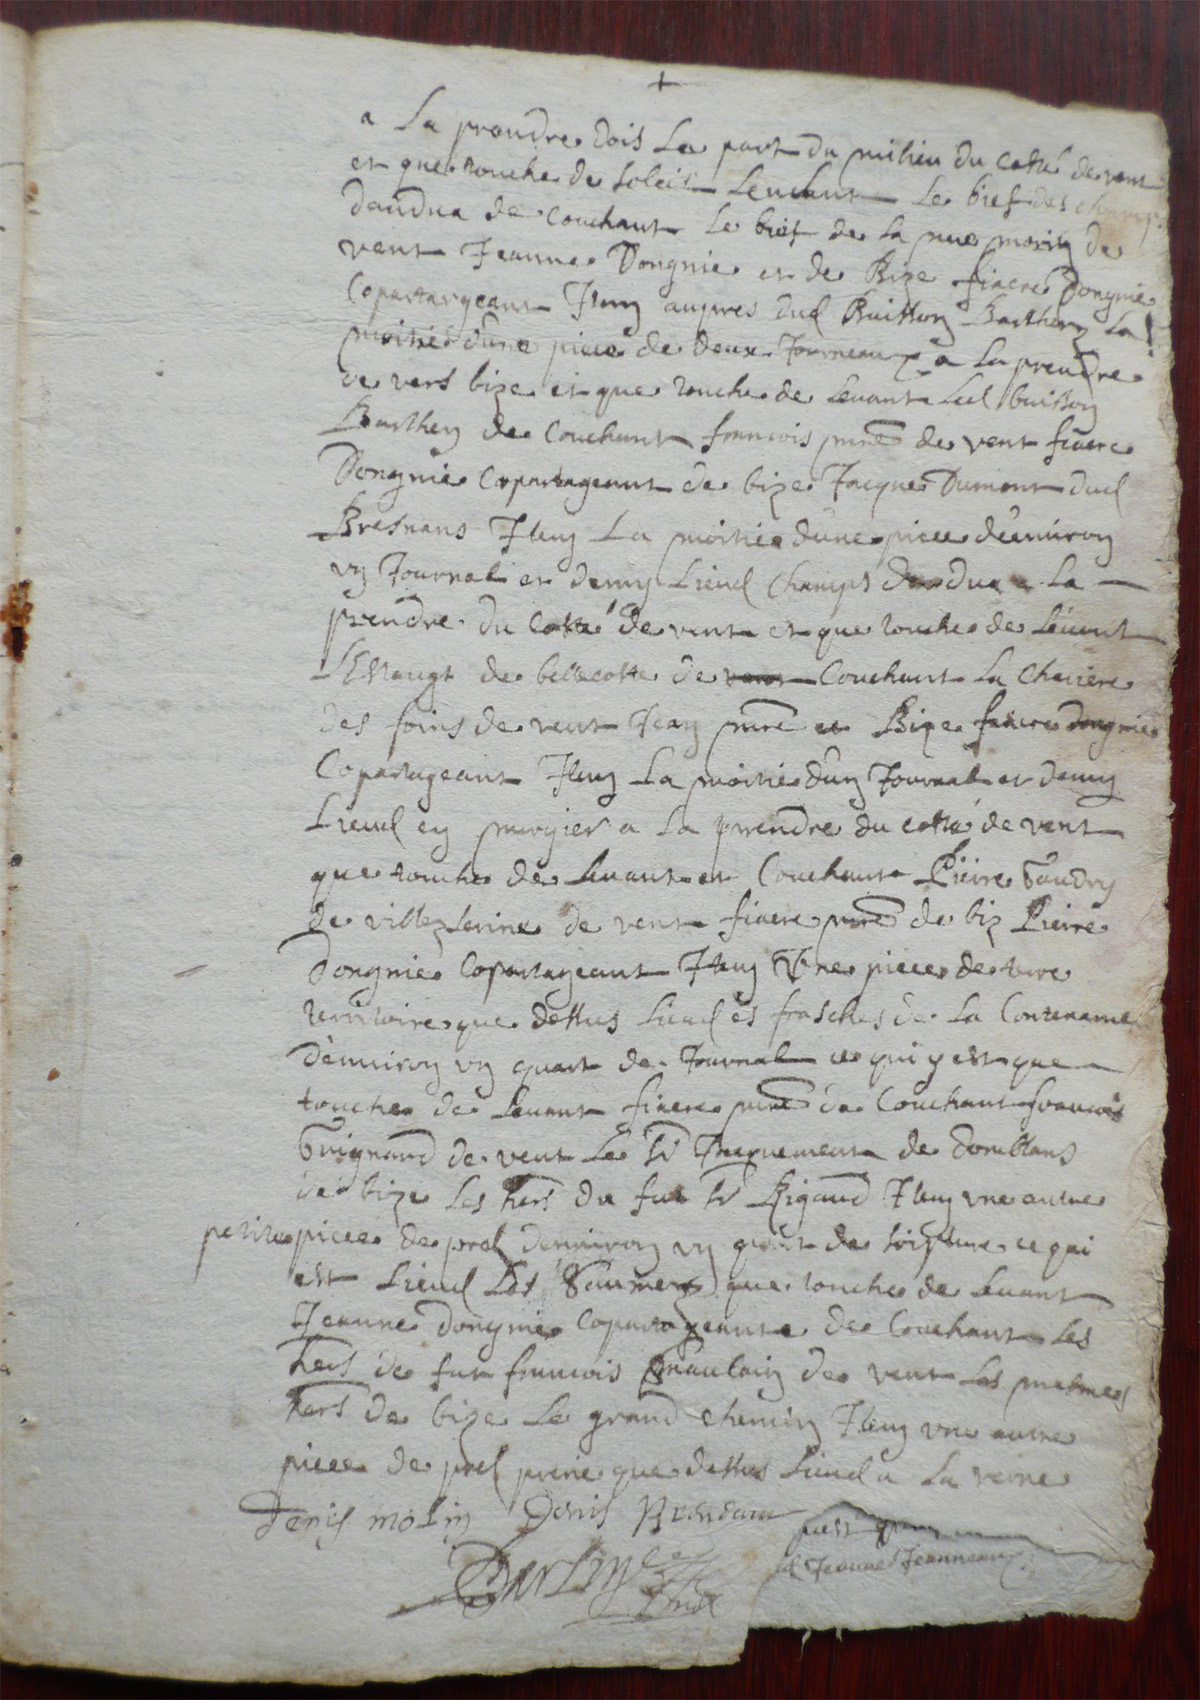 +
a La prendre dois La part du milieu du costé de vent
et que touche de soleil Leuant Le bief des champs
dandua de Couchant Le bief de la
vent Jeanne Dongnie et de Bize fiacre Dongnie
Copartargeant Item aupres dud Buisson Barthey La
moitié d'une piece de deux Journeaux a La prendre
de vers bize et que touche de Leuant Led buisson
Barthey de Couchant francois de vent fiacre
Dongnie Copartageant de bize Jacque Dumont dud
Bresnans Item La moitié dune piece denuiron
vn Journal et demy Lieud Champs dandua a La
prendre du Costé de vent et que touche de Leuant
L'Estangt de bellecoste de Couchant La Chariere
des foins de vent Jean et Bize fiacre dongnie
Copartageant Item La moitié d'un Journal et demy
Lieud en murgier a La prendre du costé de vent
que touche de Leuant et Couchant Pierre Vaudry
de villezserine de vent fiacre de biz Pierre
Dongnie Copartageant Item Vne piece de terre
territoire que dessus Lieud es frasches de La Contenance
denuiron vn quart de Journal ce qui y est que
touche de Leuant fiacre de Couchant francois
Guignard de vent Le Sr de Domblans
de bize Les hers du fut Sr Rigaud Item vne autre
petite piece de prel denuiron vn quart de soipture ce qui
est Lieud Les que touche de Leuant
Jeanne Dongnie Copartageante de Couchant Les
hers de fut francois de vent Les mesmes
hers de bize Le grand chemin Item vne autre
piece de prel prerie que dessus Lieud a La
Denis molin Denis
d Jeanne Jeanneaux